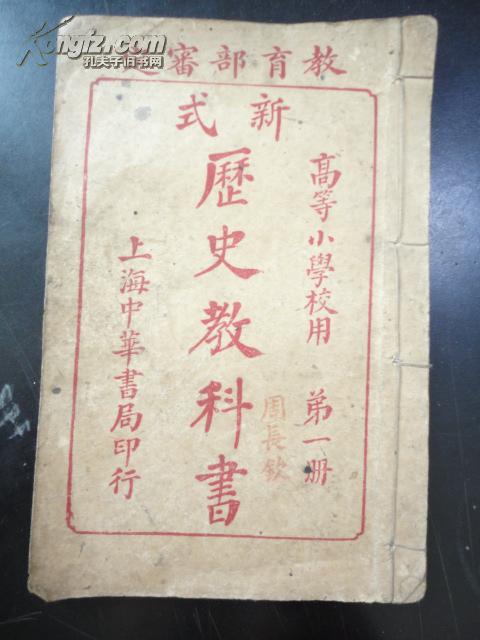 教育部審定
新式
高等小學校用 第一册
周長欽
歷史教科書
上海中華書局印行
Kongfz.com
孔夫子旧书网